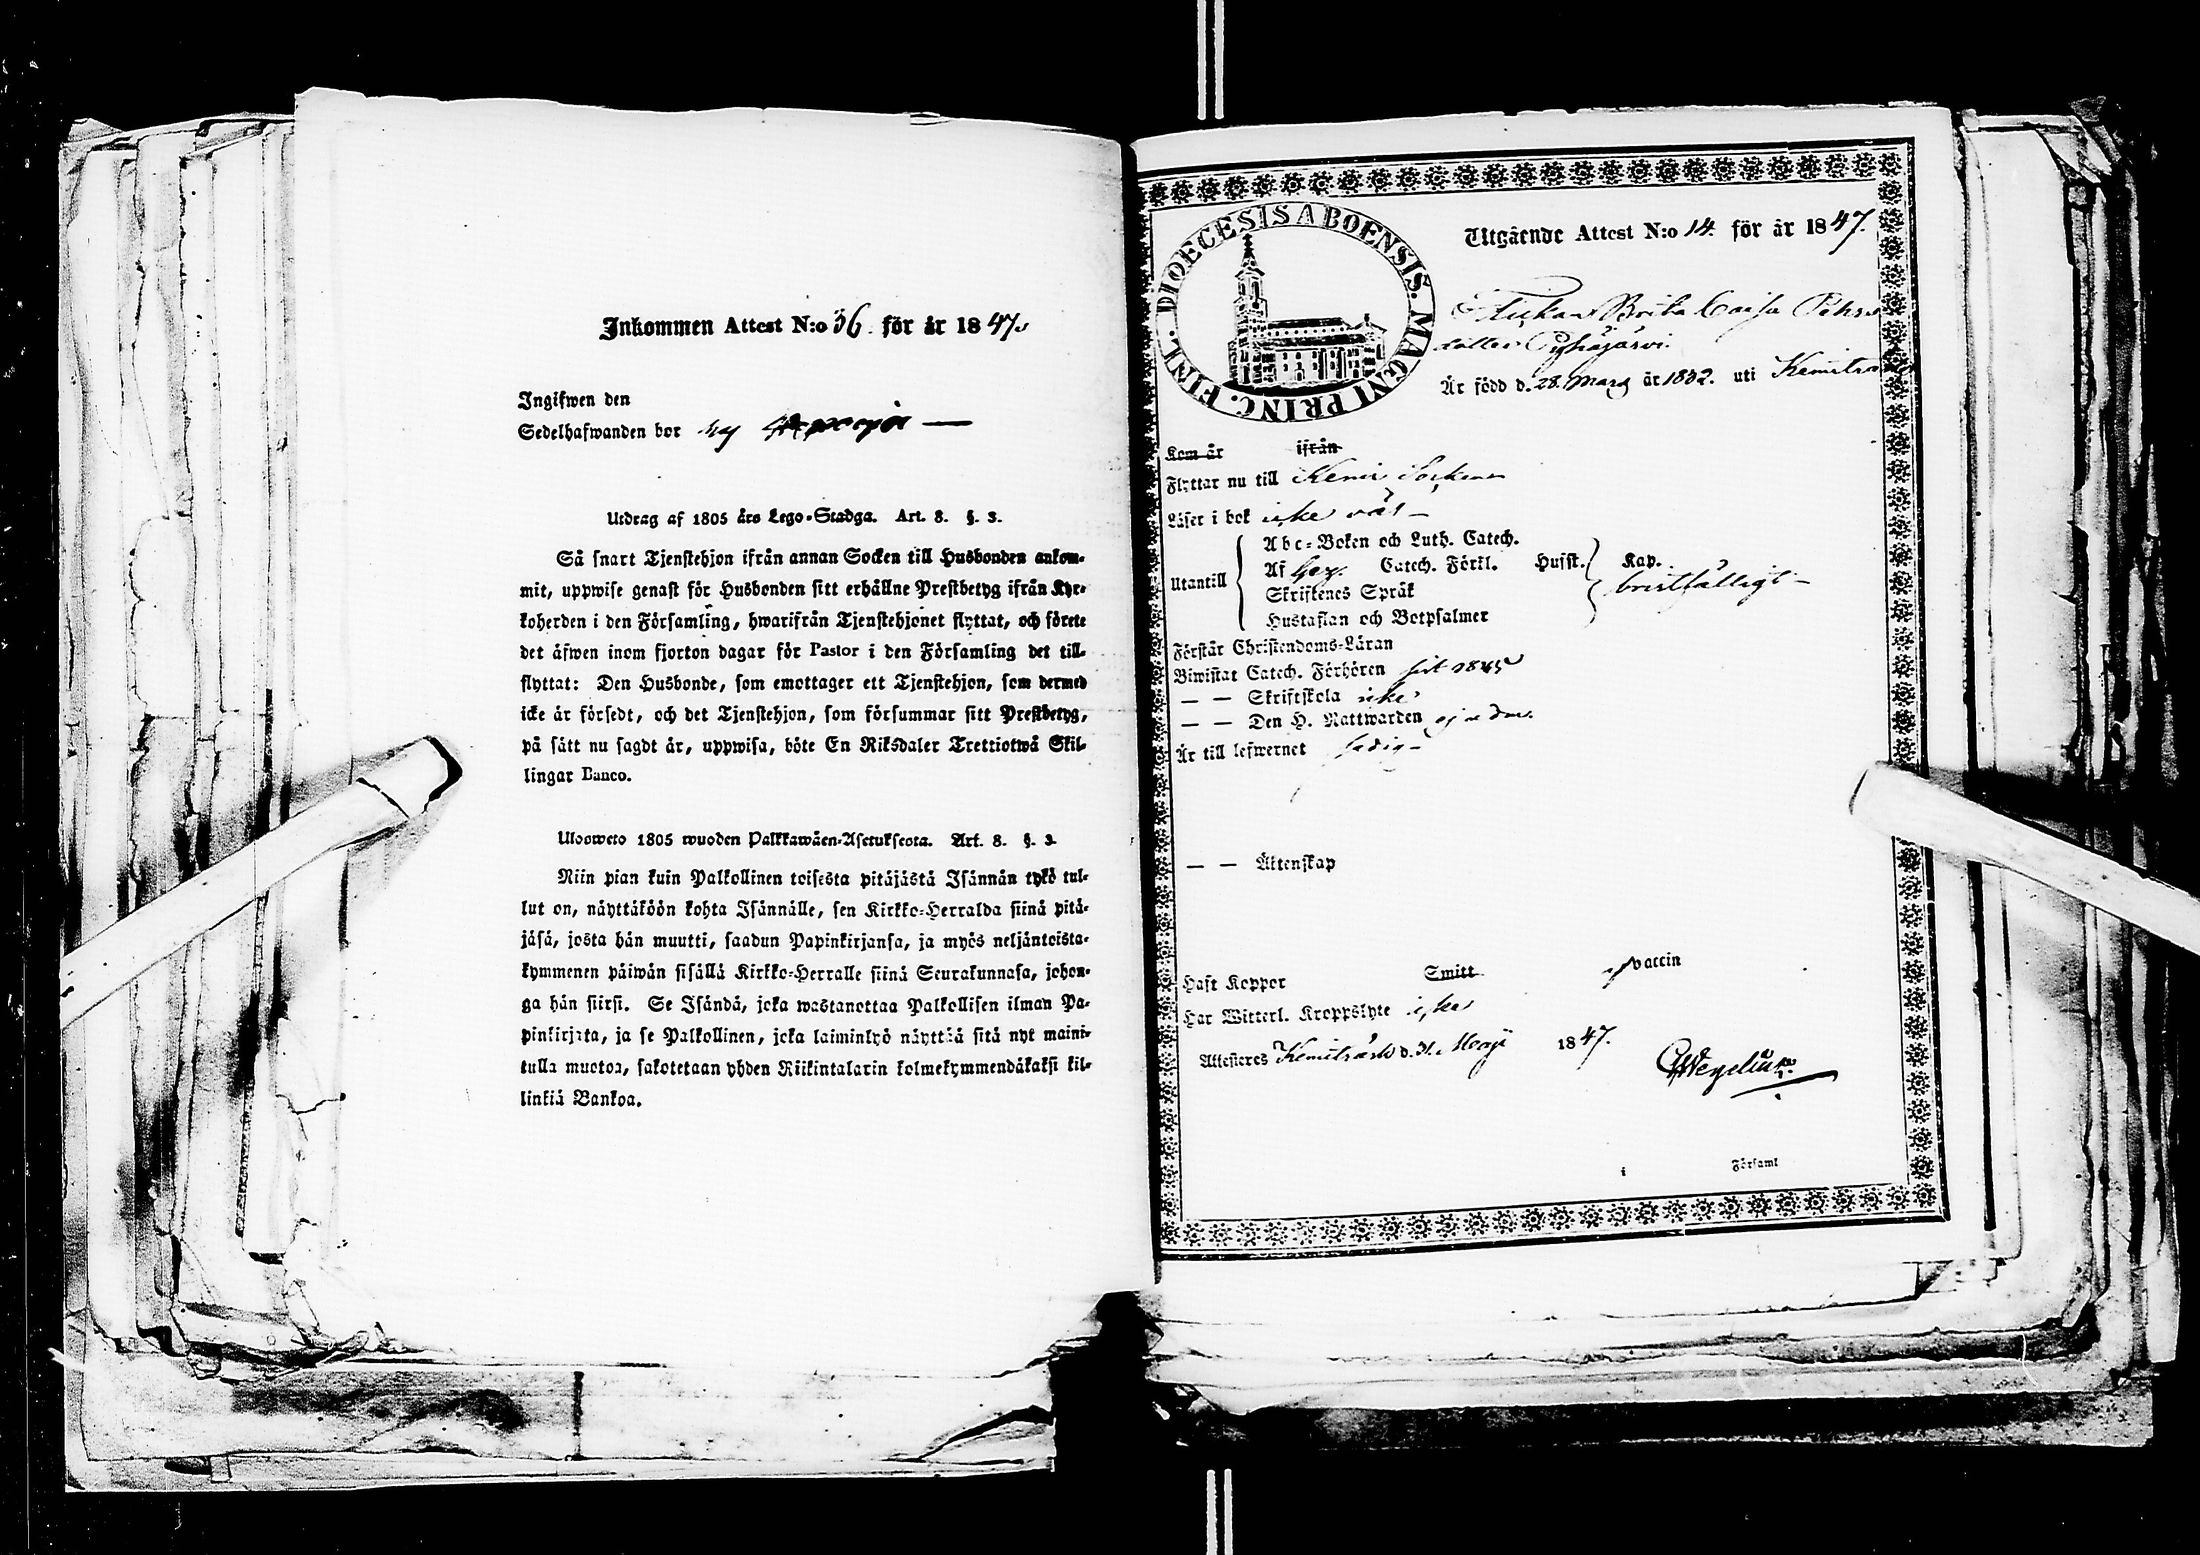 Inkommen Attest N:o 36. för år 1847.
Ingifwen den
Sedelhafwanden bor
Utdrag af 1805 års Lego-Stadga. Art. 8. §. 3.
Så snart Tjenstehjon ifrån annan Socken till Husbonden ankom-
mit, uppwise genast för Husbonden sitt erhållne Prestbetyg ifrån Kyr-
koherden i den Församling, hwarifrån Tjenstehjonet flyttat, och förete
det äfwen inom fjorton dagar för Pastor i den Församling det till-
flyttat: Den Husbonde, som emottager ett Tjenstehjon, som dermed
icke är försedt, och det Tjenstehjon, som försummar sitt Prestbetyg,
på sätt nu sagdt är, uppwisa, böte En Riksdaler Trettiotwå Skil-
lingar Banco.
Ulosweto 1805 wuoden Palkkawäen-Asetuksesta. Art. 8. §. 3.
Niin pian kuin Palkollinen toisesta pitäjästä Isännän tykö tul-
lut on, näyttäköön kohta Isännälle, sen Kirkko-Herralda siinä pitä-
jäsä, josta hän muutti, saadun Papinkirjansa, ja myös neljäntoista-
kymmenen päiwän sisällä Kirkko-Herralle siinä Seurakunnasa, johon-
ga hän siirsi. Se Isändä, joka wastanottaa Palkollisen ilman Pa-
pinkirjata, ja se Palkollinen, joka laiminlyö näyttää sitä nyt maini-
tulla muotoa, sakotetaan yhden Riikintalarin kolmekymmendäkaksi kil-
linkiä Bankoa.
DIOECESIS ABOENSIS. MAGNI PRINC. FINL.
Utgående Attest N:o 14. för år 1847.
Pigan Brita Caisa Pehrs
dotter Pyhäjärvi.
Är född d. 28. Mars år 1832. uti Kemiträsk
Kom år ifrån
Flyttar nu till Kemi Socken
Läser i bok icke väl -
Utantill
Abc-Boken och Luth. Catech.
Af Catech. Förkl. Hufst. Kap.
Skriftenes Språk
Hustaflan och Botpsalmer
bristfälligt -
Förstår Christendoms-Läran
Biwistat Catech. Förhören sist 1845
— — Skriftskola icke
— — Den H. Nattwarden
Är till lefwernet
— — Äktenskap
Haft Koppor Smitt vaccin
Har Witterl. Kroppslyte icke
Attesteres Kemiträsk d. 31. Maji 1847.
i Församl